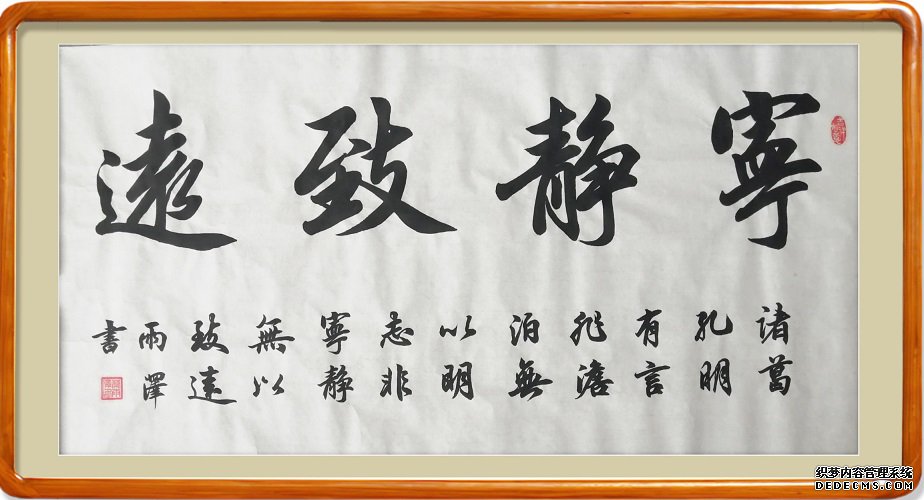 寧靜致遠
諸葛
孔明
有言
非澹
泊無
以明
志非
寧靜
無以
致遠
雨澤
書
织梦内容管理系统
DEDECMS.COM